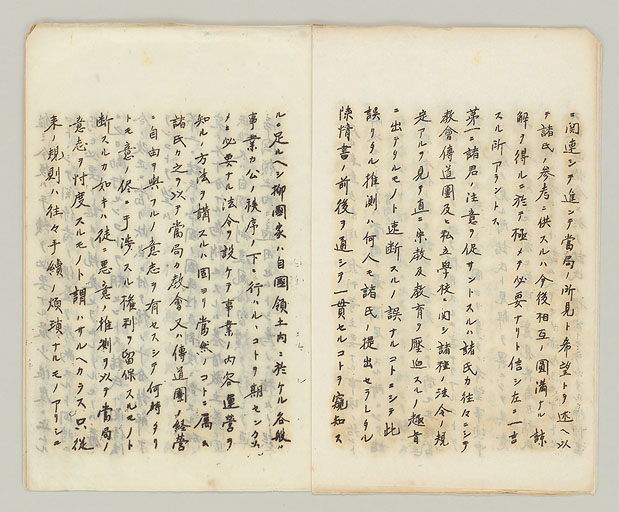 ニ関連シテ進ンテ当局ノ所見ト希望トヲ述ヘ以
テ諸氏ノ参考ニ供スルハ今後相互ノ円満ナル諒
解ヲ得ルニ於テ極メテ必要ナリト信シ左ニ一言
スル所アラントス
第一ニ諸君ノ注意ヲ促サントスルハ諸氏カ往々ニシテ
教会伝道団及ヒ私立学校ニ関シ諸種ノ法令ノ規
定アルヲ見テ直ニ宗教及教育ヲ圧迫スルノ趣旨
ニ出テタルモノト速断スルノ誤ナルコトニシテ此
誤リタル推測ハ何人モ諸氏ノ提出セラレタル
陳情書ノ前後ヲ通シテ一貫セルコトヲ窺知ス
ルニ足ルヘシ抑国家ハ自国領土内ニ於ケル各般ノ
事業カ公ノ秩序ノ下ニ行ハルヽコトヲ期センカ為
メニ必要ナル法令ヲ設ケテ事業ノ内容運営ヲ
知ルノ方法ヲ講スルハ固ヨリ当然ノコトニ属ス
諸氏カ之ヲ以テ当局カ教会又ハ伝道団ノ経営
ニ自由ヲ与フルノ意志ヲ有セスシテ何時タリ
トモ意ノ侭ニ干渉スル権利ヲ留保スルモノト
断スルカ如キハ徒ニ悪意ノ推測ヲ以テ当局ノ
意志ヲ忖度スルモノト謂ハサルヘカラス只従
来ノ規則ハ往々手続ノ煩瑣ナルモノアリシニ